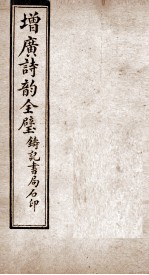 增廣詩韵全璧
鋳記書局石印